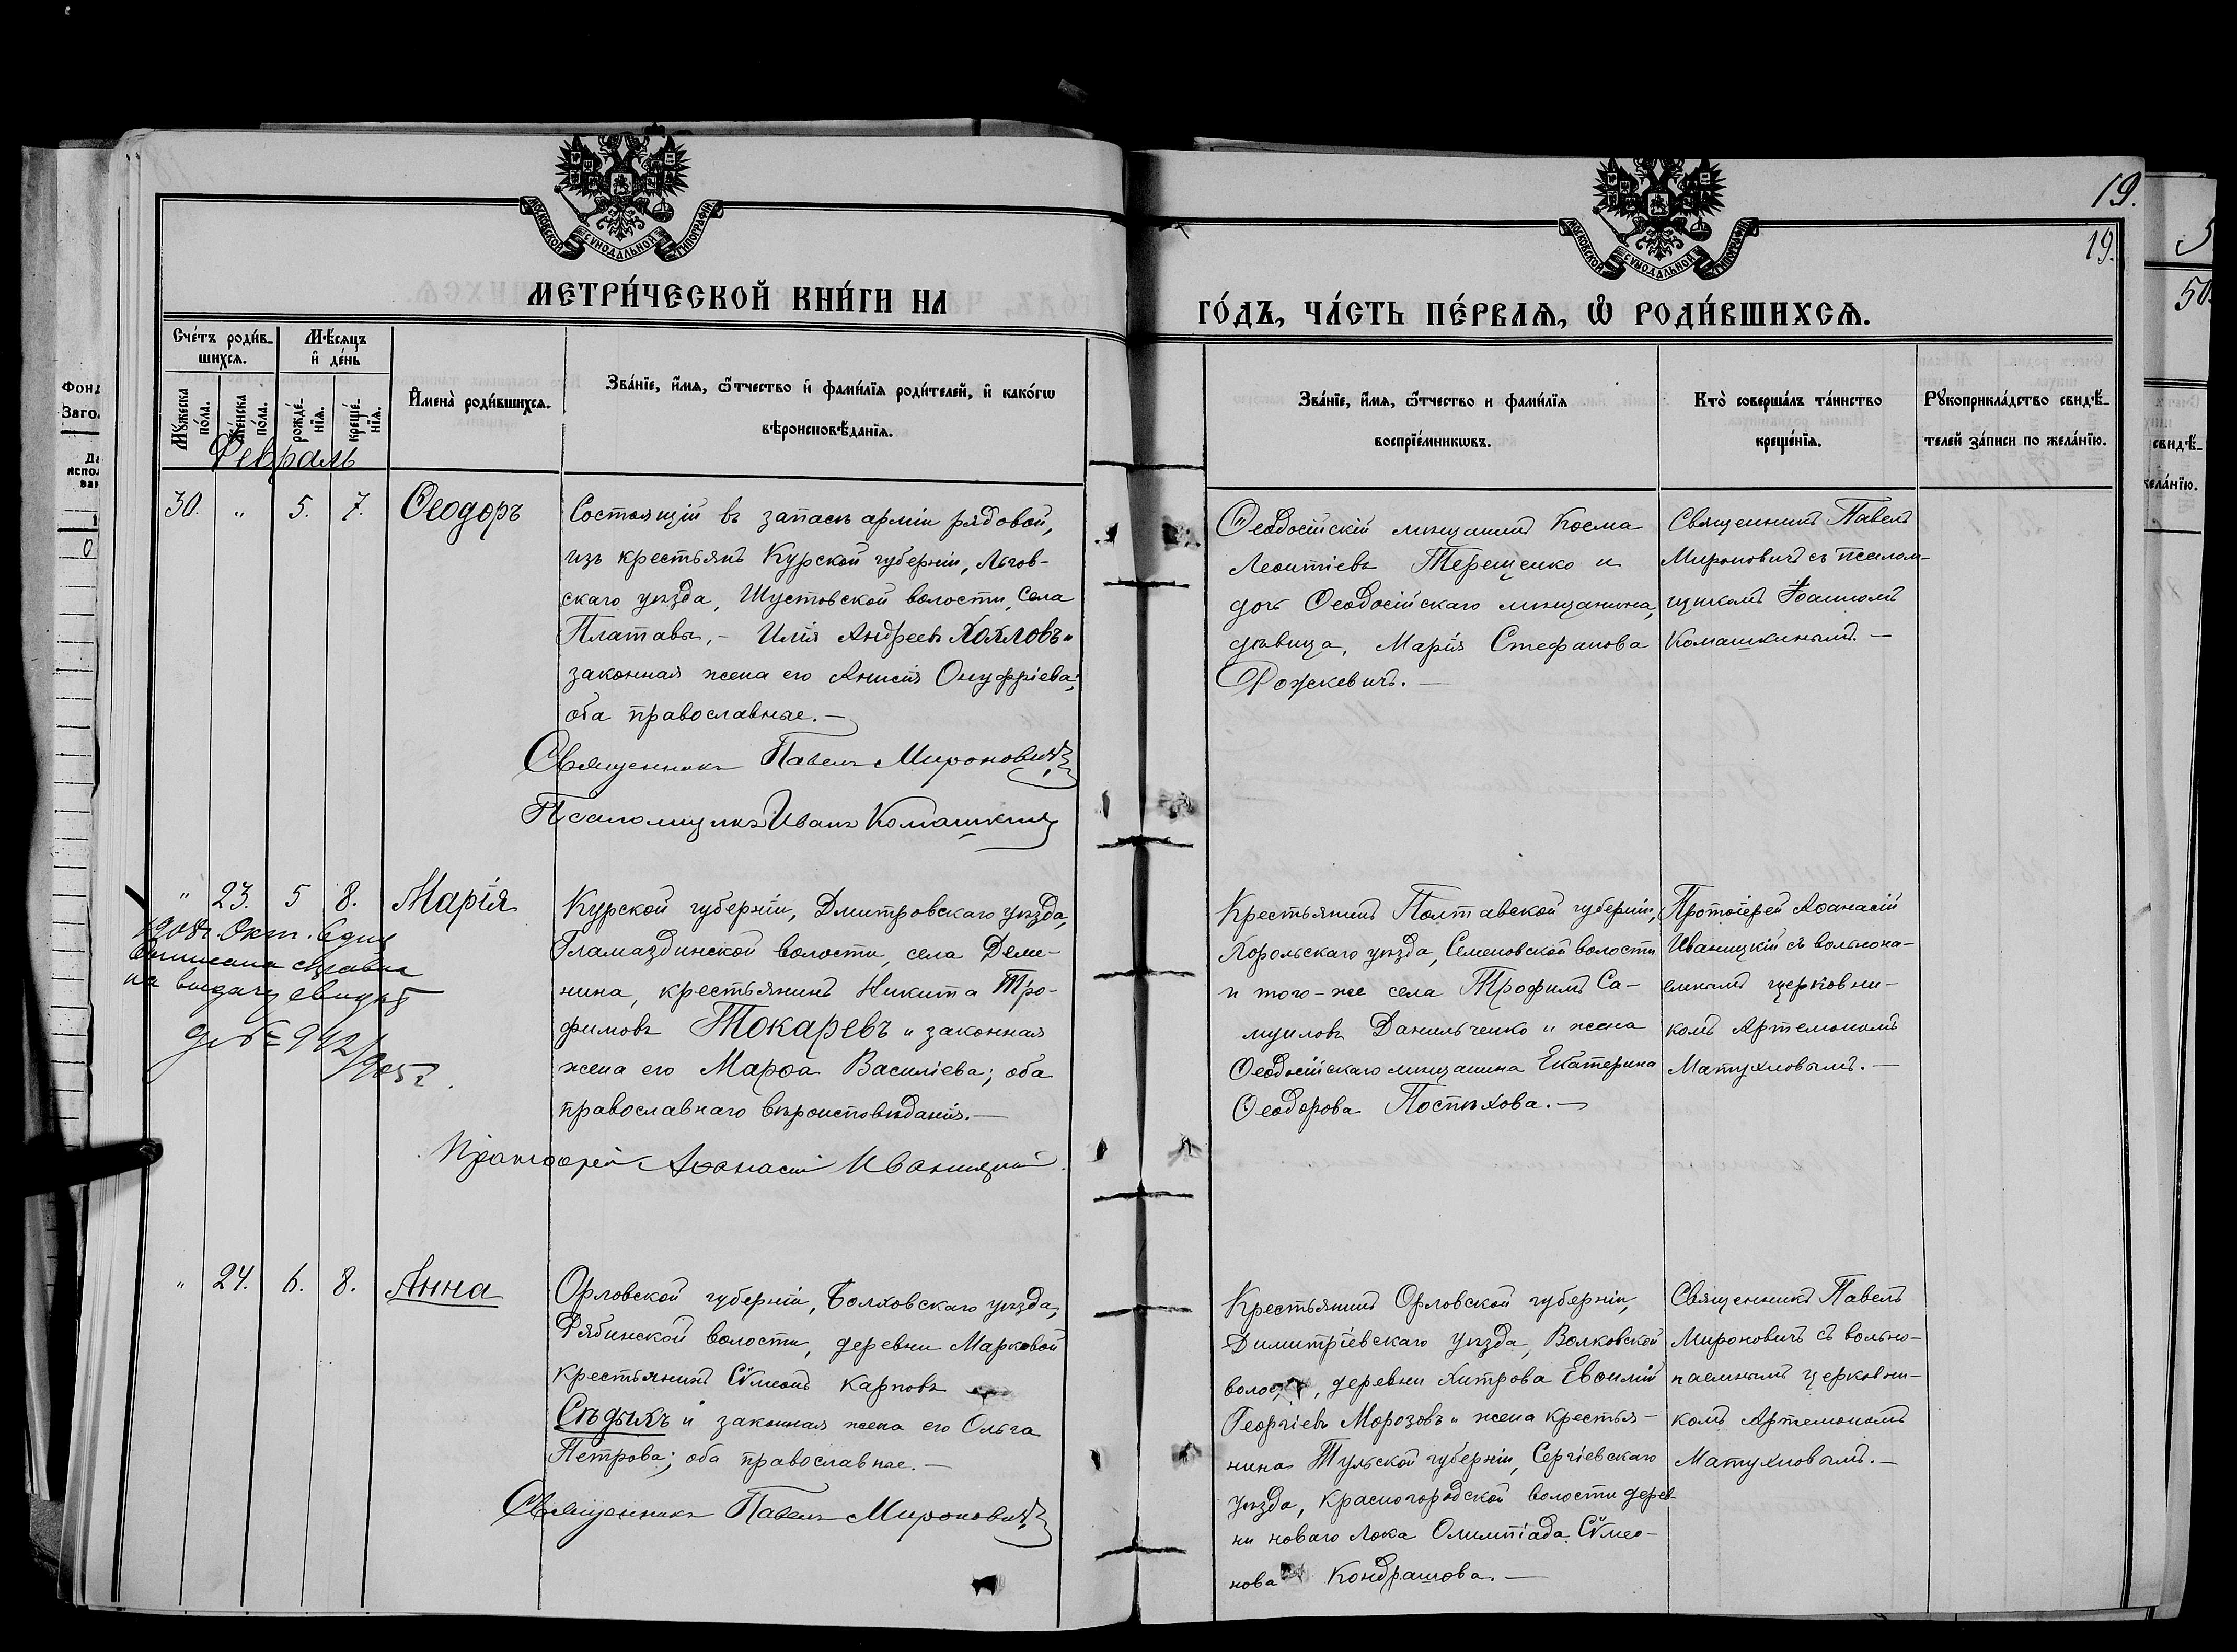 19.
19.
МОСКОВСКОЙ СУНОДАЛЬНОЙ ТИПОГРАФІИ
МОСКОВСКОЙ СУНОДАЛЬНОЙ ТИПОГРАФІИ
МЕТРИ́ЧЕСКОЙ КНИ́ГИ НА
ГО́ДЪ, ЧА́СТЬ ПЕ́РВАѦ, Ѡ РОДИ́ВШИХСѦ.
Сче́тъ роди́в-
шихсѧ.
Мѣ́сѧцъ
и де́нь
Мꙋжеска
по́ла.
Же́нска
по́ла.
рожде́-
нїѧ.
креще́-
нїѧ.
Имена̀ роди́вшихсѧ.
Зва́нїе, и́мѧ, ѻ́тчество и фами́лїѧ роди́телей, и како́гѡ
вѣроисповѣ́данїѧ.
Зва́нїе, и́мѧ, ѻ́тчество и фами́лїѧ
воспрїе́мникѡвъ.
Кто̀ соверша́лъ та́инство
креще́нїѧ.
Рꙋкоприкла́дство свидѣ́-
телей за́писи по жела́нїю.
Февраль
30. " 5. 7. Ѳеодоръ
Состоящій въ запасѣ арміи рядовой,
изъ крестьянъ Курской губерніи, Льгов-
скаго уѣзда, Шустовской волости, села
Платавы, - Илія Андреевъ Хохловъ и
законная жена его Анисія Онуфріева;
оба православные. —
Священникъ Павелъ Мироновичъ
Псаломщикъ Иванъ Комашкинъ
Ѳеодосійскій мѣщанинъ Косма
Леонтіевъ Терещенко и
дочь Ѳеодосійскаго мѣщанина,
дѣвица, Марія Стефанова
Рожкевичъ. —
Священникъ Павелъ
Мироновичъ съ псалом-
щикомъ Іоанномъ
Комашкинымъ. —
" 23. 5 8. Марія
1908г. Окт. 6 дня
справка
на выдачу свидѣт
942/905г.
Курской губерніи, Дмитровскаго уѣзда,
Гламаздинской волости, села Деме-
нина, крестьянинъ Никита Тро-
фимовъ Токаревъ и законная
жена его Марѳа Василіева; оба
православнаго вѣроисповѣданія. —
Протоіерей Аѳанасій Иваницкій.
Крестьянинъ Полтавской губерніи,
Хорольскаго уѣзда, Семеновской волости
и того-же села Трофимъ Са-
муиловъ Данильченко и жена
Ѳеодосійскаго мѣщанина Екатерина
Ѳеодорова Постѣхова. —
Протоіерей Аѳанасій
Иваницкій съ вольнона-
емнымъ церковни-
комъ Артемономъ
Матухновымъ. —
" 24. 6. 8. Анна
Орловской губерніи, Болховскаго уѣзда,
Рябинской волости, деревни Марковой
крестьянинъ Сѵмеонъ Карповъ
Сѣдыхъ и законная жена его Ольга
Петрова; оба православные. —
Священникъ Павелъ Мироновичъ
Крестьянинъ Орловской губерніи,
Димитріевскаго уѣзда, Волковской
волости, деревни Хитрова Евѳимій
Георгіевъ Морозовъ и жена крестья-
нина Тульской губерніи, Сергіевскаго
уѣзда, Красногородской волости дерев-
ни новаго Лока Олимпіада Сѵмео-
нова Кондрашова. —
Священникъ Павелъ
Мироновичъ съ вольно-
наемнымъ церковни-
комъ Артемономъ
Матухновымъ. —